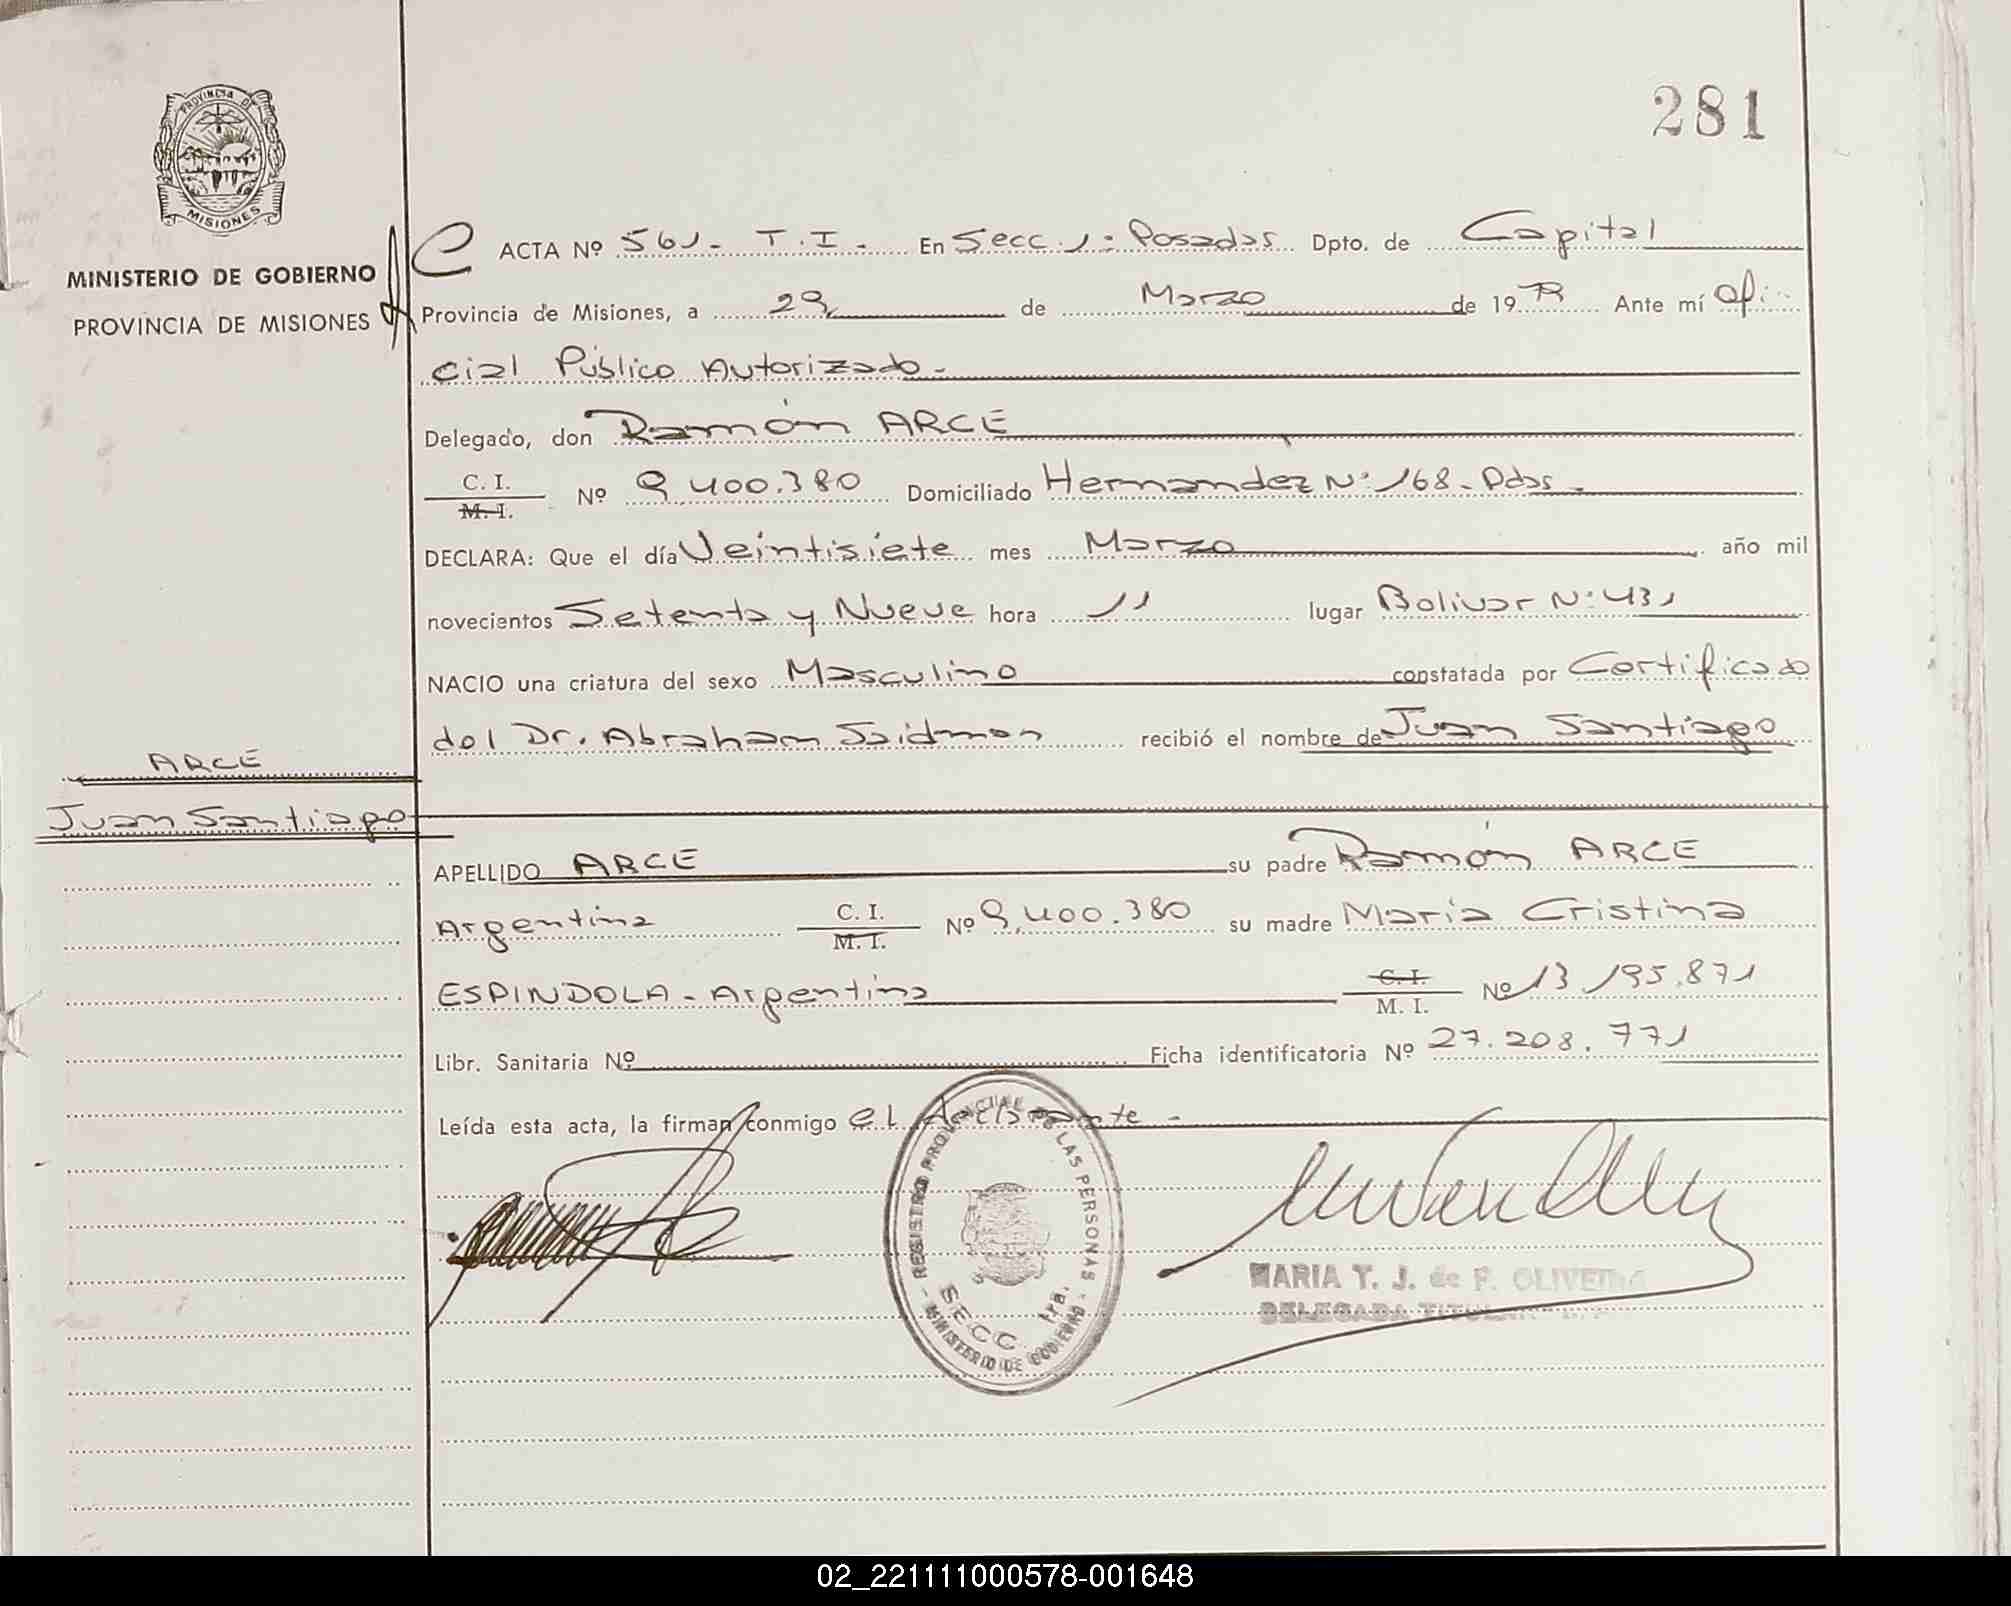 281
PROVINCIA DE
MISIONES
MINISTERIO DE GOBIERNO
PROVINCIA DE MISIONES
ARCE
Juan Santiago
ACTA Nº 561- T.I- En Secc. 1: Posadas Dpto. de Capital
Provincia de Misiones, a 29 de Marzo de 1979 Ante mí Ofi-
cial Público Autorizado-
Delegado, don Ramón ARCE
C. I.
M. I. Nº 9,400.380 Domiciliado Hernandez Nº 168- Pdas-
DECLARA: Que el día Veintisiete mes Marzo año mil
novecientos Setenta y Nueve hora 11 lugar Bolivar Nº 431
NACIO una criatura del sexo Masculino constatada por Certificado
del Dr. Abraham Saidman recibió el nombre de Juan Santiago
APELLIDO ARCE su padre Ramón ARCE
Argentina C. I.
M. I. Nº 9,400.380 su madre María Cristina
ESPINDOLA- Argentina C. I.
M. I. Nº 13 195.871
Libr. Sanitaria Nº Ficha identificatoria Nº 27.208.771
Leída esta acta, la firman conmigo el Declarante-
REGISTRO PROVINCIAL DE LAS PERSONAS
SECC. 1ra.
MINISTERIO DE GOBIERNO
MARIA T. J. de F. OLIVEIRA
DELEGADA TITULAR
02_221111000578-001648